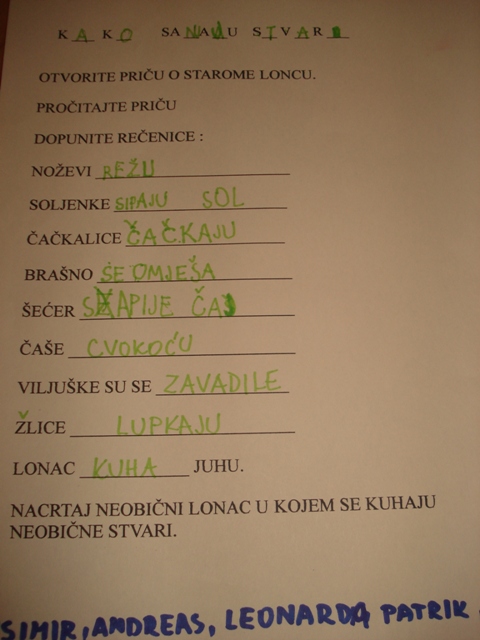 KAKO SANJAJU STVARI
OTVORITE PRIČU O STAROME LONCU.
PROČITAJTE PRIČU
DOPUNITE REČENICE :
NOŽEVI REŽU
SOLJENKE SIPAJU SOL
ČAČKALICE ČAČKAJU
BRAŠNO SE OMJEŠA
ŠEĆER SAPIJE ČAJ
ČAŠE CVOKOĆU
VILJUŠKE SU SE ZAVADILE
ŽLICE LUPKAJU
LONAC KUHA JUHU.
NACRTAJ NEOBIČNI LONAC U KOJEM SE KUHAJU
NEOBIČNE STVARI.
SIMIR, ANDREAS, LEONARDA PATRIK